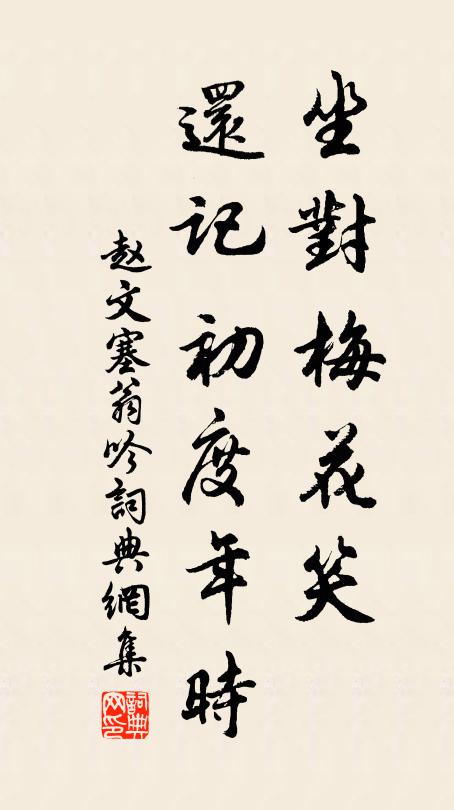 坐對梅花笑
還記初度年時
赵文塞翁吟詞典網集
詞典网印